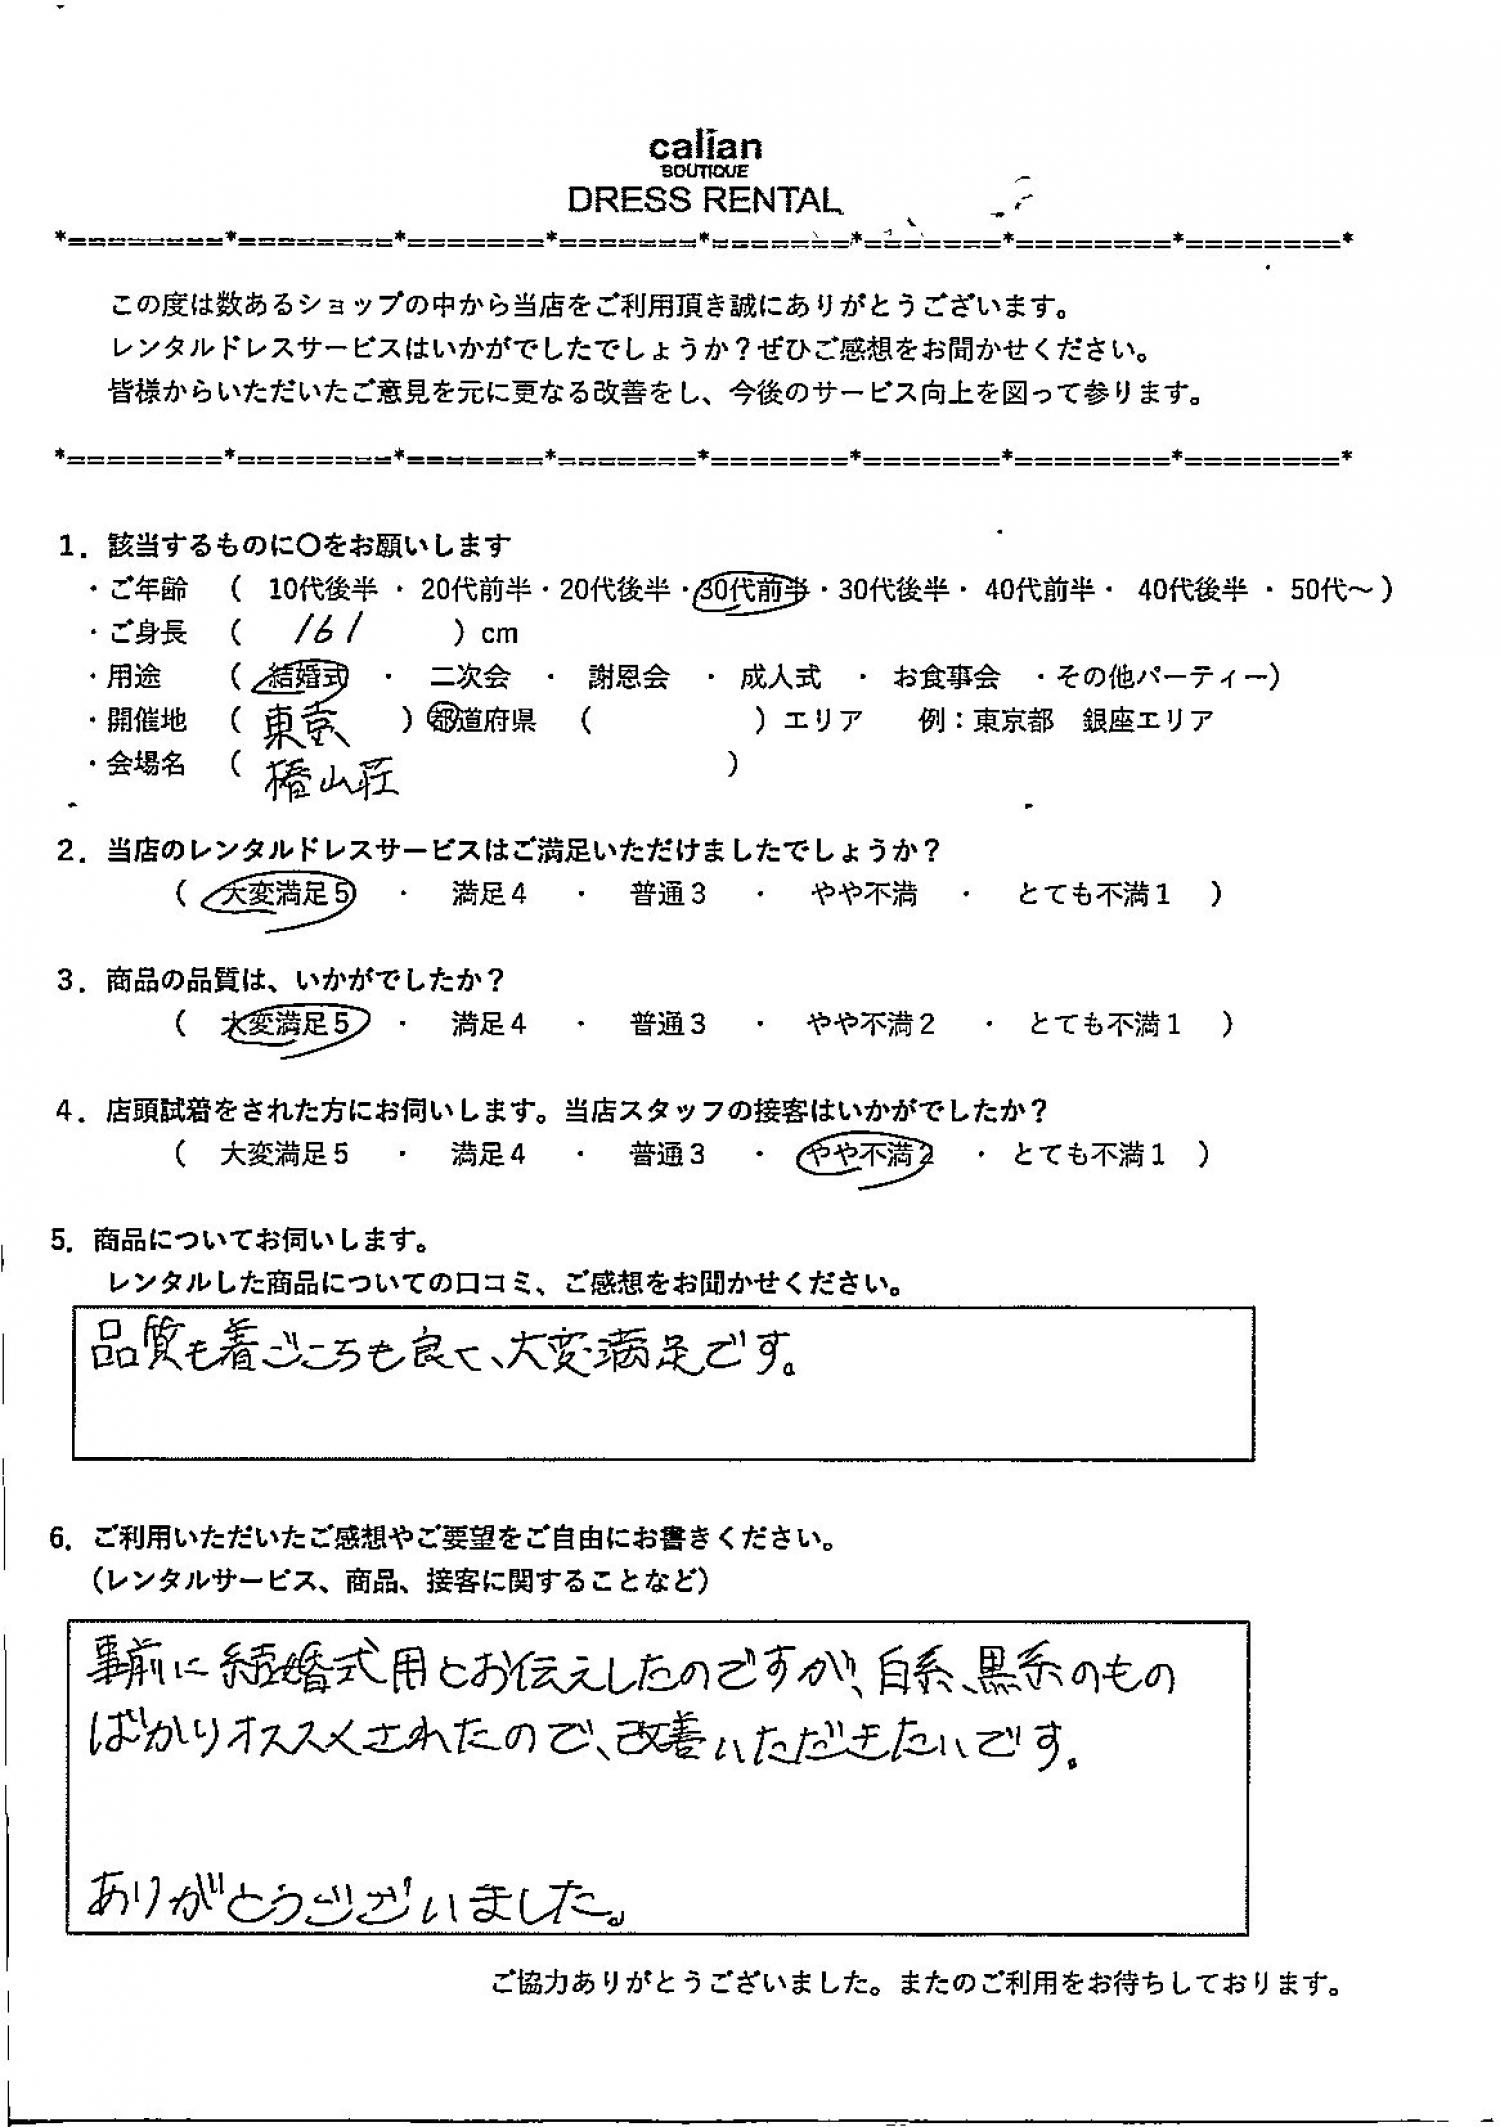 calian
BOUTIQUE
DRESS RENTAL
*========*========*=======*=======*=======*=======*========*========*
この度は数あるショップの中から当店をご利用頂き誠にありがとうございます。
レンタルドレスサービスはいかがでしたでしょうか？ぜひご感想をお聞かせください。
皆様からいただいたご意見を元に更なる改善をし、今後のサービス向上を図って参ります。
*========*========*=======*=======*=======*=======*========*========*
1．該当するものに〇をお願いします
・ご年齢 （ 10代後半 ・ 20代前半・20代後半・30代前半・30代後半・ 40代前半・ 40代後半 ・ 50代～）
・ご身長 （ 161 ）cm
・用途 （ 結婚式 ・ 二次会 ・ 謝恩会 ・ 成人式 ・ お食事会 ・その他パーティー）
・開催地 （ 東京 ）都道府県 （ ）エリア 例：東京都 銀座エリア
・会場名 （ 椿山荘 ）
2．当店のレンタルドレスサービスはご満足いただけましたでしょうか？
（ 大変満足5 ・ 満足4 ・ 普通3 ・ やや不満 ・ とても不満1 ）
3．商品の品質は、いかがでしたか？
（ 大変満足5 ・ 満足4 ・ 普通3 ・ やや不満2 ・ とても不満1 ）
4．店頭試着をされた方にお伺いします。当店スタッフの接客はいかがでしたか？
（ 大変満足5 ・ 満足4 ・ 普通3 ・ やや不満2 ・ とても不満1 ）
5．商品についてお伺いします。
レンタルした商品についての口コミ、ご感想をお聞かせください。
品質も着ごこちも良く、大変満足です。
6．ご利用いただいたご感想やご要望をご自由にお書きください。
（レンタルサービス、商品、接客に関することなど）
事前に結婚式用とお伝えしたのですが、白系、黒系のもの
ばかりオススメされたので、改善いただきたいです。
ありがとうございました。
ご協力ありがとうございました。またのご利用をお待ちしております。